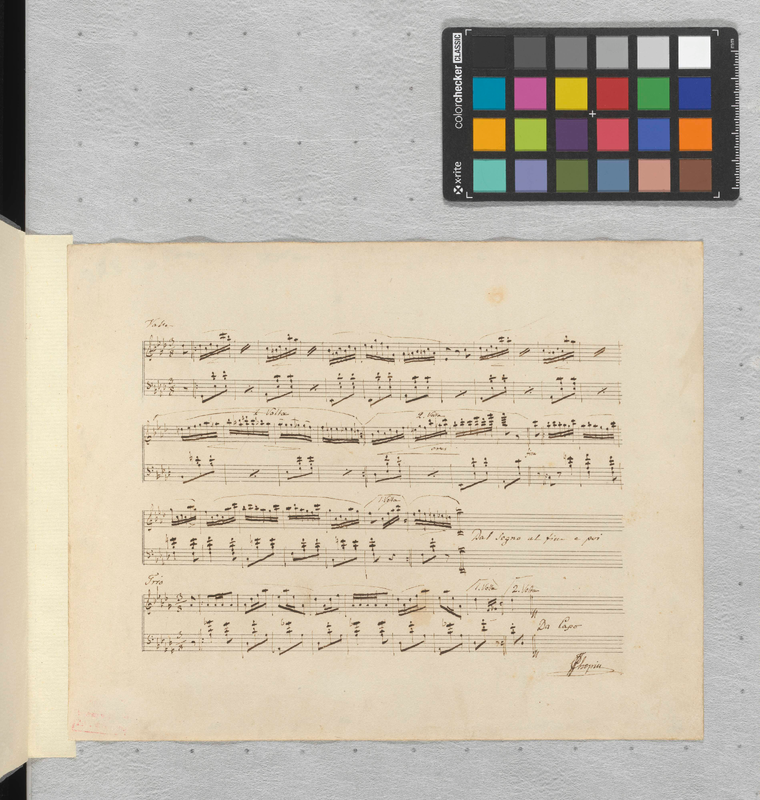 colorchecker CLASSIC
x-rite
Valse
1. Volta
2. Volta
1. Volta
Dal Segno al fine e poi
Trio
1. Volta 2. Volta
Da Capo
Chopin